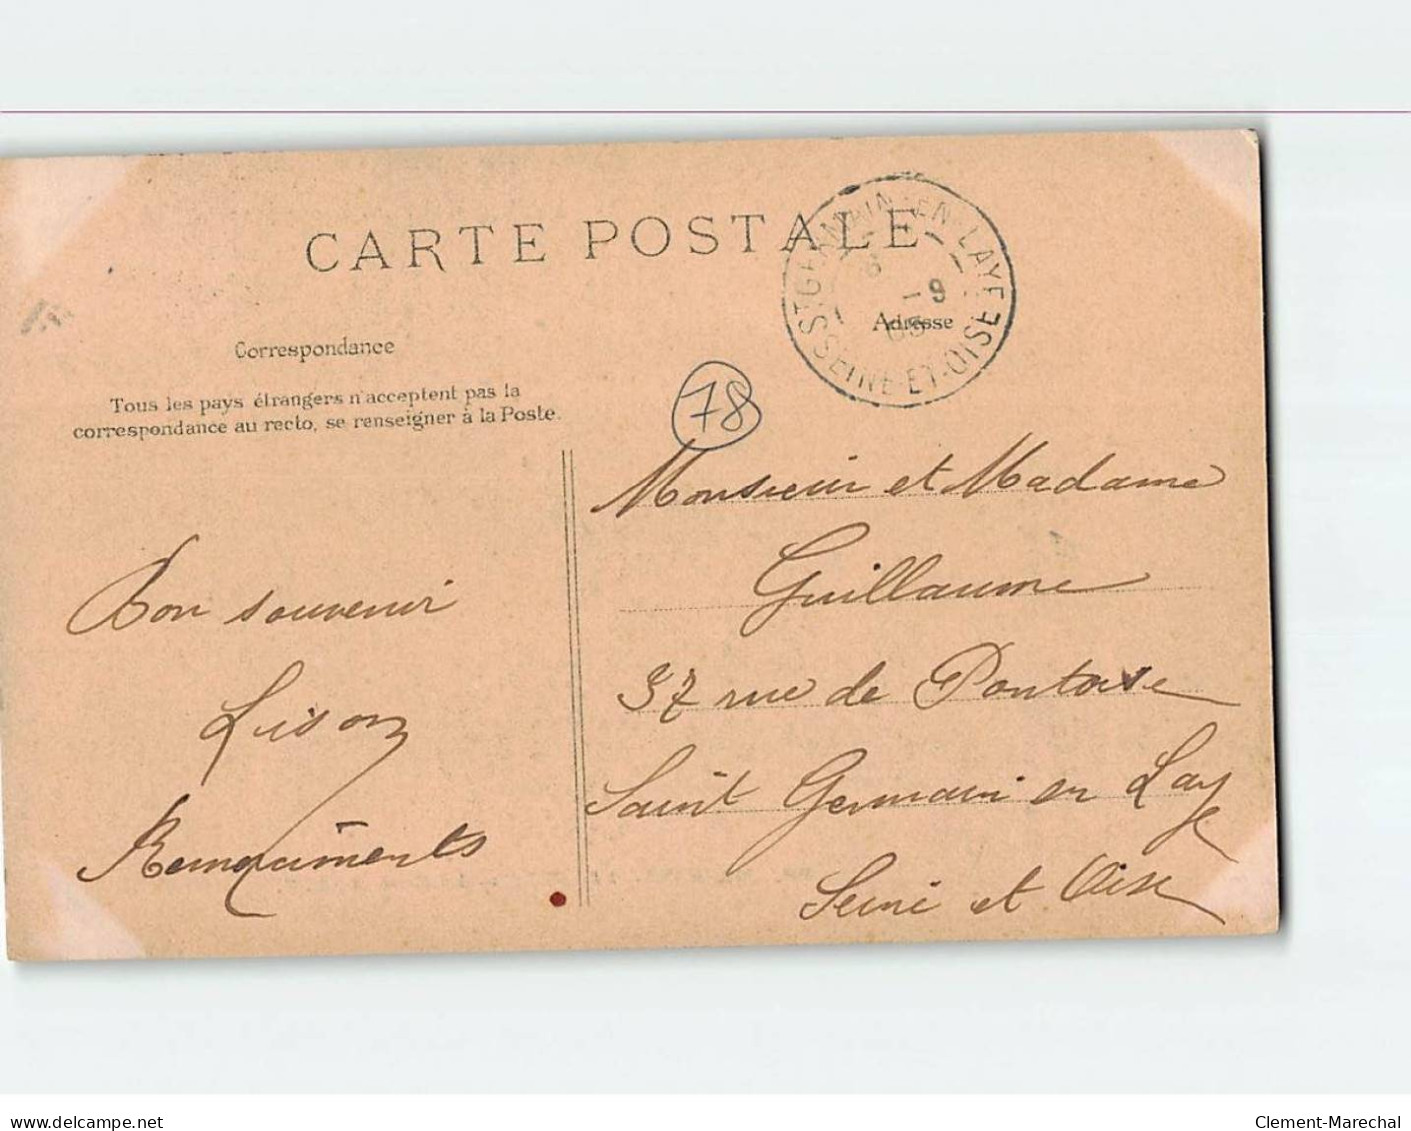 CARTE POSTALE
ST GERMAIN-EN-LAYE
-9
05
SEINE-ET-OISE
Adresse
Correspondance
Tous les pays étrangers n'acceptent pas la
correspondance au recto, se renseigner à la Poste.
78
Bon souvenir
Lison
Monsieur et Madame
Guillaume
37 rue de Pontoise
Saint Germain en Laye
Seine et Oise
www.delcampe.net
Clement-Marechal